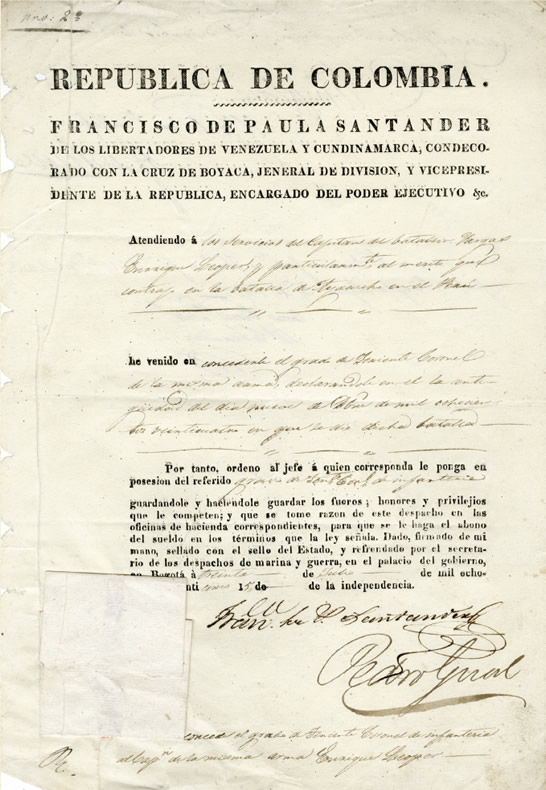 nro. 2º
REPUBLICA DE COLOMBIA.
FRANCISCO DE PAULA SANTANDER
DE LOS LIBERTADORES DE VENEZUELA Y CUNDINAMARCA, CONDECO-
RADO CON LA CRUZ DE BOYACA, JENERAL DE DIVISION, Y VICEPRESI-
DENTE DE LA REPUBLICA, ENCARGADO DEL PODER EJECUTIVO &c.
Atendiendo á los servicios del Capitan del batallon Vargas
Enrique y particularmte. al merito que
contrajo en la batalla de Ayacucho en el Perú
he venido en concederle el grado de Teniente Coronel
de la misma arma, declarandole en el la anti-
guedad del dia nueve de Dbre de mil ochocien-
tos veinticuatro en que se dio dicha batalla
Por tanto, ordeno al jefe á quien corresponda le ponga en
posesion del referido grado de de infanteria
guardandole y haciendole guardar los fueros; honores y privilejios
que le competen; y que se tome razon de este despacho en las
oficinas de hacienda correspondientes, para que se le haga el abono
del sueldo en los términos que la ley señala. Dado, firmado de mi
mano, sellado con el sello del Estado, y refrendado por el secreta-
rio de los despachos de marina y guerra, en el palacio del gobierno,
en Bogotá á treinta de Julio de mil ocho-
15 de de la independencia.
Fran. de P. Santander
Pedro Gual
concede el grado de Teniente Coronel de infanteria
al Capn. de la misma arma Enrique